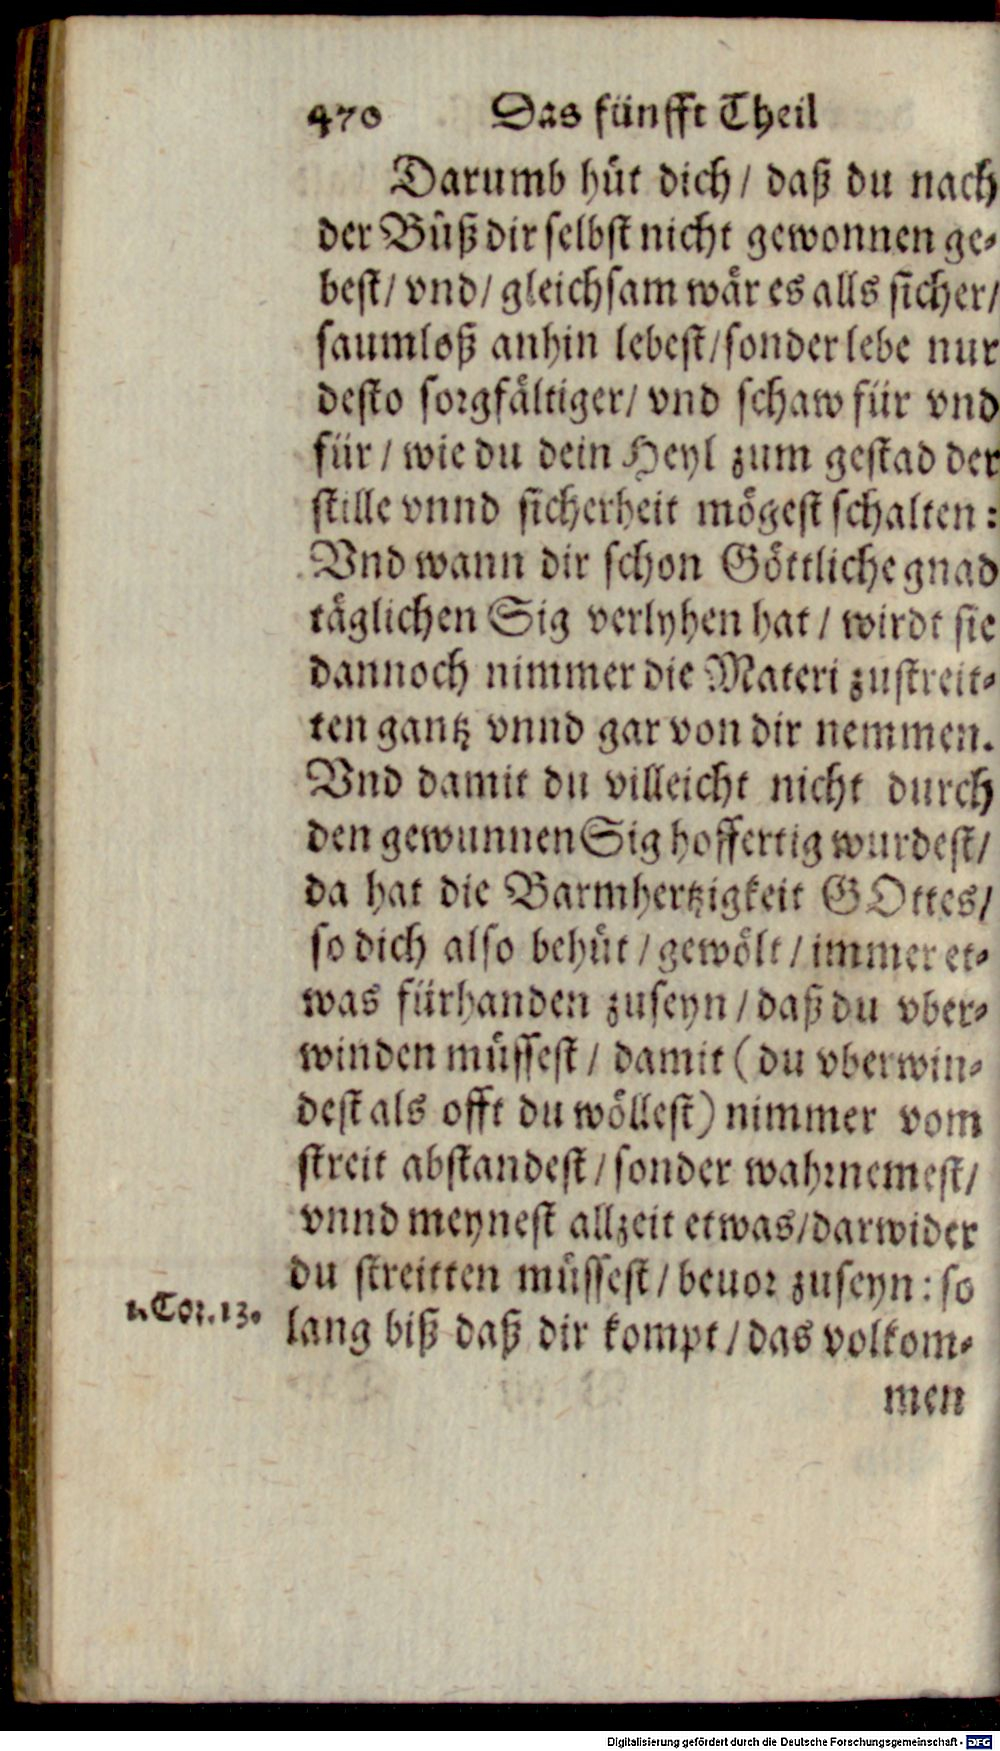 470 Das fünfft Theil
Darumb hüt dich/ daß du nach
der Büß dir selbst nicht gewonnen ge-
best/ vnd/ gleichsam wär es alls sicher/
saumloß anhin lebest/ sonder lebe nur
desto sorgfältiger/ vnd schaw für vnd
für/ wie du dein Heyl zum gestad der
stille vnnd sicherheit mögest schalten:
Vnd wann dir schon Göttliche gnad
täglichen Sig verlyhen hat/ wirdt sie
dannoch nimmer die Materi zustreit-
ten gantz vnnd gar von dir nemmen.
Vnd damit du villeicht nicht durch
den gewunnen Sig hoffertig wurdest/
da hat die Barmhertzigkeit GOttes/
so dich also behüt/ gewölt/ immer et-
was fürhanden zuseyn/ daß du vber-
winden müssest/ damit (du vberwin-
dest als offt du wöllest) nimmer vom
streit abstandest/ sonder wahrnemest/
vnnd meynest allzeit etwas/ darwider
du streitten müssest/ beuor zuseyn: so
1. Cor. 13. lang biß daß dir kompt/ das volkom-
men
Digitalisierung gefördert durch die Deutsche Forschungsgemeinschaft - DFG